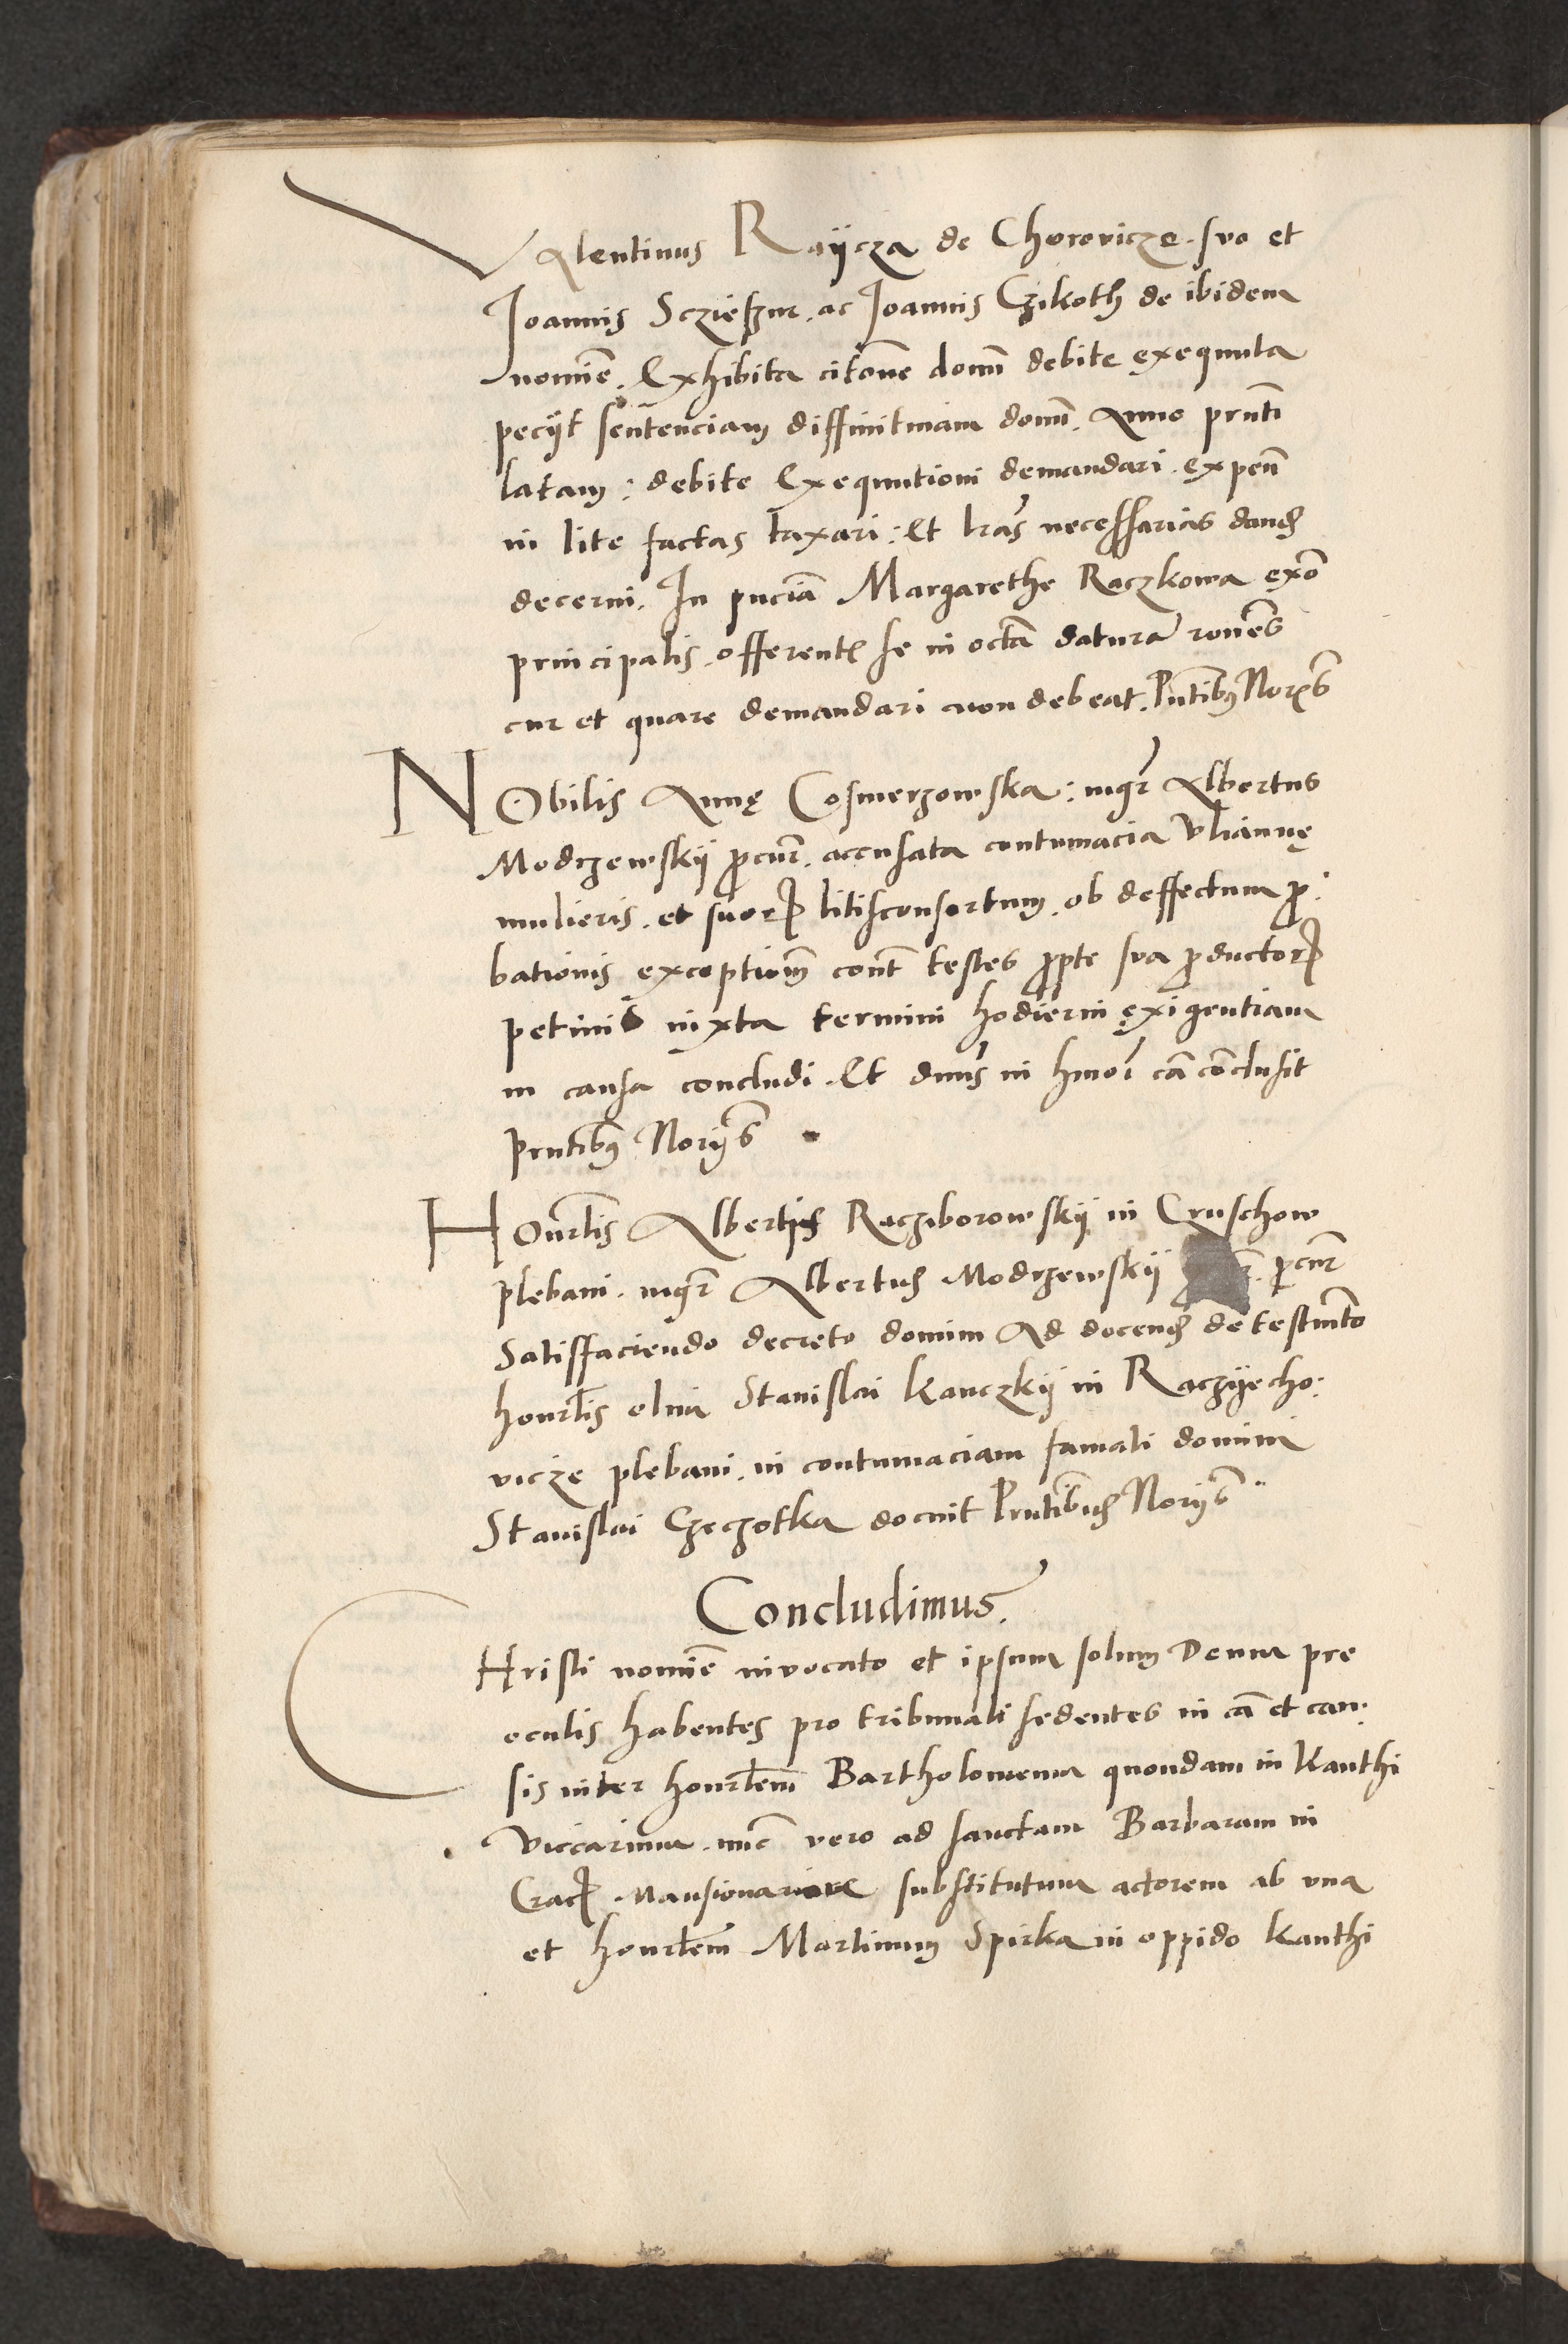 Valentinus Raÿcza de Chorowicze. suo et
Joannis Sczieszur. ac Joannis Czikoth de ibidem
nomīe. Exhibita citōne domī debite exequuta
peciit sentenciam diffinitiuam domī. Anno prnti
latam: debite Exequutioni demandari. expeñ
in lite factas taxari: Et lrās necessarias dand
decerni. In pnciā Margarethe Raczkowa exō
principalis. offerentis se in octā daturā rōnes
cur et quare demandari non debeat. Pntibus Norijs
NObilis Annę Cosmerzowska: mgr Albertus
Modrzewskÿ procur. accusata contumacia Vliannę
mulieris. et suorum litisconsortum. ob deffectum pro:
bationis exceptionū cont testes pro pte sua productorum
petiuit iuxta termini hodierni exigentiam
in causa concludi. Et dnus in hmōi cā cōclusit
prntibus Norijs
HOnrlis Albertis Racziborowskÿ in Cruschow
plebani. mgr Albertus Modrzewskÿ procur
Satisfaciendo decreto domini Ad docend de testmto
honrlis olim Stanislai Kanczkÿ in Raczÿecho:
vicze plebani. in contumaciam famati domini
Stanislai Czeczotka docuit Prntibus Norijs
Concludimus.
CHristi nomīe inuocato et ipsum solum Deum pre
oculis habentes pro tribunali sedentes in cā et cau:
sis inter honrlem Bartholomeum quondam in Kanthi
Viccarium. nūc vero ad sanctam Barbaram in
Crac. Mansionarium substitutum actorem ab vna
et honrlem Martinum Spirka in oppido Kanthi